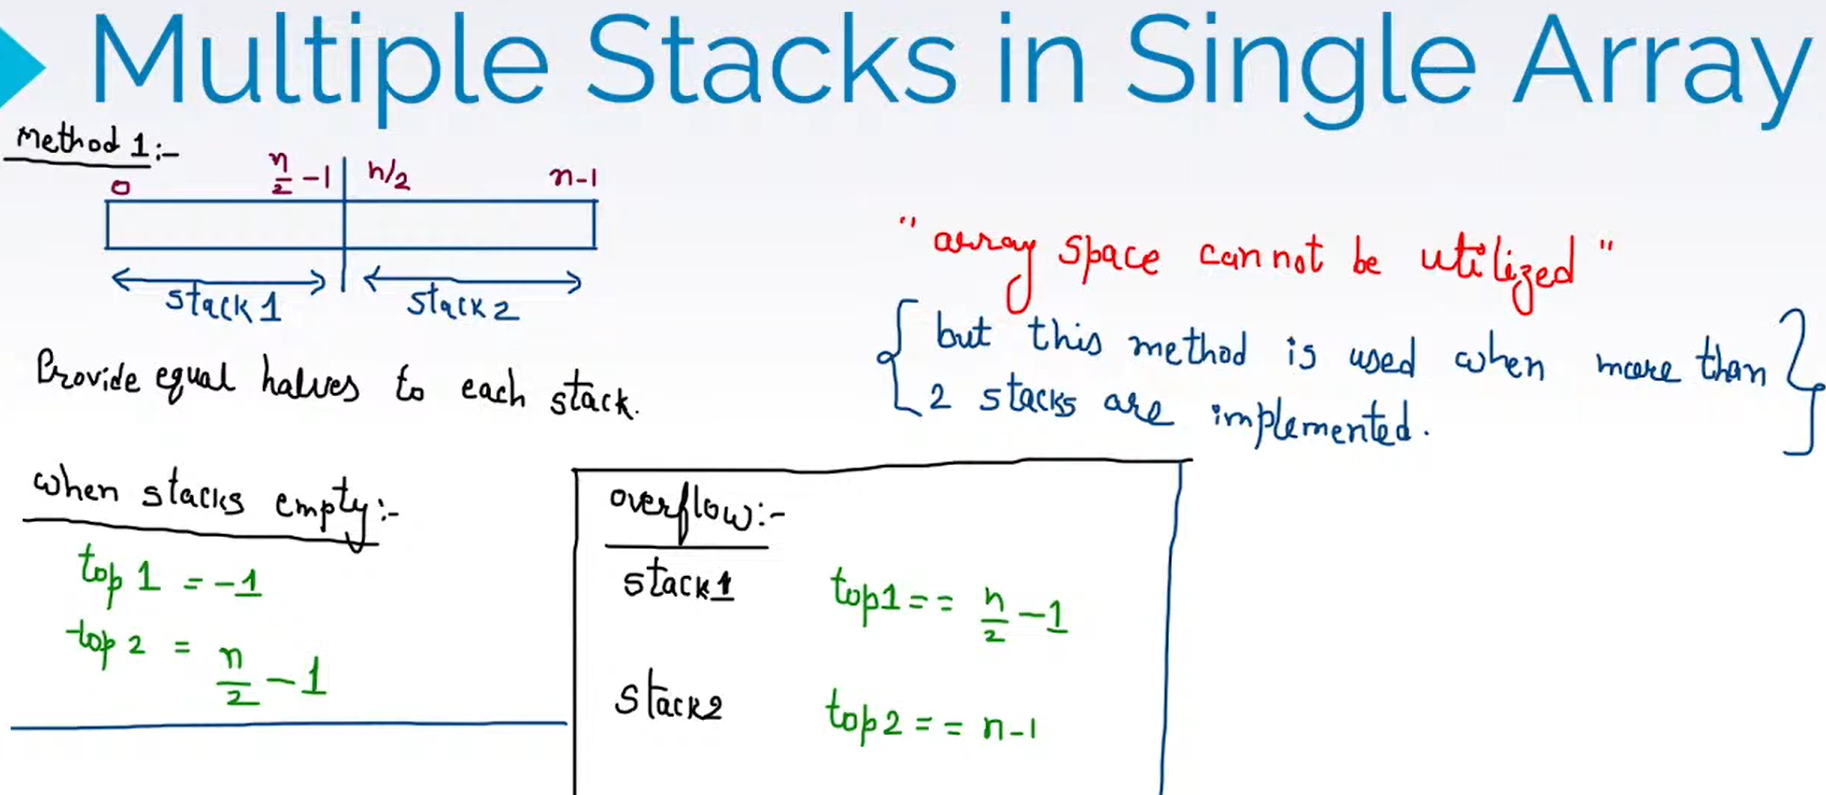 Multiple Stacks in Single Array
Method 1:-
0 n/2 -1 n/2 n-1
stack 1 stack 2
Provide equal halves to each stack.
"array space cannot be utilized"
{ but this method is used when more than
2 stacks are implemented. }
when stacks empty:-
top 1 = -1
top 2 = n/2 - 1
overflow:-
stack1 top1 == n/2 - 1
stack2 top2 == n-1